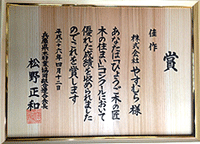 賞
佳作
株式会社 やすむら 様
あなたは「ひょうご木の匠
木の住まい」コンクールにおいて
優れた成績を収められました
のでこれを賞します
平成二十六年四月十三日
松野正和